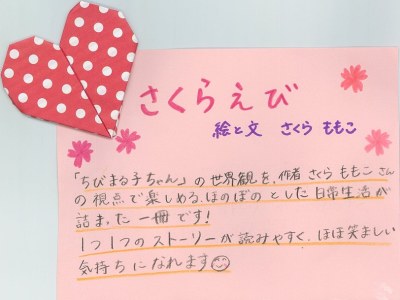 さくらえび
絵と文 さくら ももこ
「ちびまる子ちゃん」の世界観を、作者 さくら ももこ さん
の視点で楽しめる、ほのぼのとした日常生活が
詰まった一冊です!
1つ1つのストーリーが読みやすく、ほほ笑ましい
気持ちになれます☺